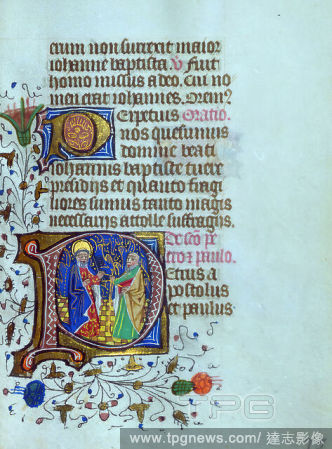 eum non surrexit maior
iohanne baptista. V Fuit
homo missus a deo. Cui no
men erat iohannes. Orem9
Perpetuis Oratio.
nos quesumus
domine beati
iohannis baptiste tuere
presidijs et quanto fragi
liores sumus tanto magis
necessarijs attolle suffragijs.
De sco pe
tro et paulo.
Petrus a
postolus
et paulus
TPG
www.tpgnews.com/ 達志影像